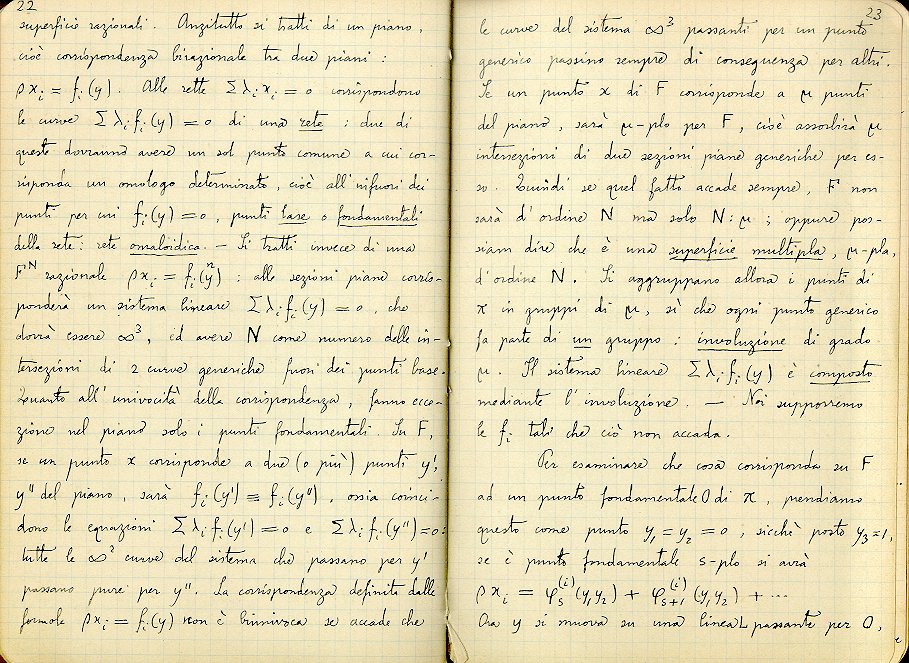 22
superficie razionali. Anzitutto si tratti di un piano,
cioè corrispondenza birazionale tra due piani :
ρxᵢ = fᵢ(y). Alle rette Σλᵢxᵢ = 0 corrispondono
le curve Σλᵢfᵢ(y) = 0 di una rete : due di
queste dovranno avere un sol punto comune a cui cor-
risponda un omologo determinato, cioè all'infuori dei
punti per cui fᵢ(y) = 0, punti base o fondamentali
della rete : rete omaloidica. – Si tratti invece di una
Fᴺ razionale ρxᵢ = fᵢ(yⁿ) : alle sezioni piane corris-
ponderà un sistema lineare Σλᵢfᵢ(y) = 0, che
dovrà essere ∞³, ed avere N come numero delle in-
tersezioni di 2 curve generiche fuori dei punti base.
Quanto all'univocità della corrispondenza, fanno ecce-
zione nel piano solo i punti fondamentali. Su F,
se un punto x corrisponde a due (o più) punti y',
y'' del piano, sarà fᵢ(y') ≡ fᵢ(y''), ossia coinci-
dono le equazioni Σλᵢfᵢ(y') = 0 e Σλᵢfᵢ(y'') = 0:
tutte le ∞² curve del sistema che passano per y'
passano pure per y''. La corrispondenza definita dalle
formole ρxᵢ = fᵢ(y) non è biunivoca se accade che
23
le curve del sistema ∞³ passanti per un punto
generico passino sempre di conseguenza per altri.
Se un punto x di F corrisponde a μ punti
del piano, sarà μ-plo per F, cioè assorbirà μ
intersezioni di due sezioni piane generiche per es-
so. Quindi se quel fatto accade sempre, F non
sarà d'ordine N ma solo N:μ ; oppure pos-
siam dire che è una superficie multipla, μ-pla,
d'ordine N. Si aggruppano allora i punti di
π in gruppi di μ, sì che ogni punto generico
fa parte di un gruppo : involuzione di grado
μ. Il sistema lineare Σλᵢfᵢ(y) è composto
mediante l'involuzione. – Noi supporremo
le fᵢ tali che ciò non accada.
Per esaminare che cosa corrisponda su F
ad un punto fondamentale O di π, prendiamo
questo come punto y₁ = y₂ = 0, sicchè posto y₃=1,
se è punto fondamentale s-plo si avrà
ρxᵢ = φₛ⁽ⁱ⁾(y₁y₂) + φₛ₊₁⁽ⁱ⁾(y₁y₂) + ...
Ora y si muova su una linea L passante per O,